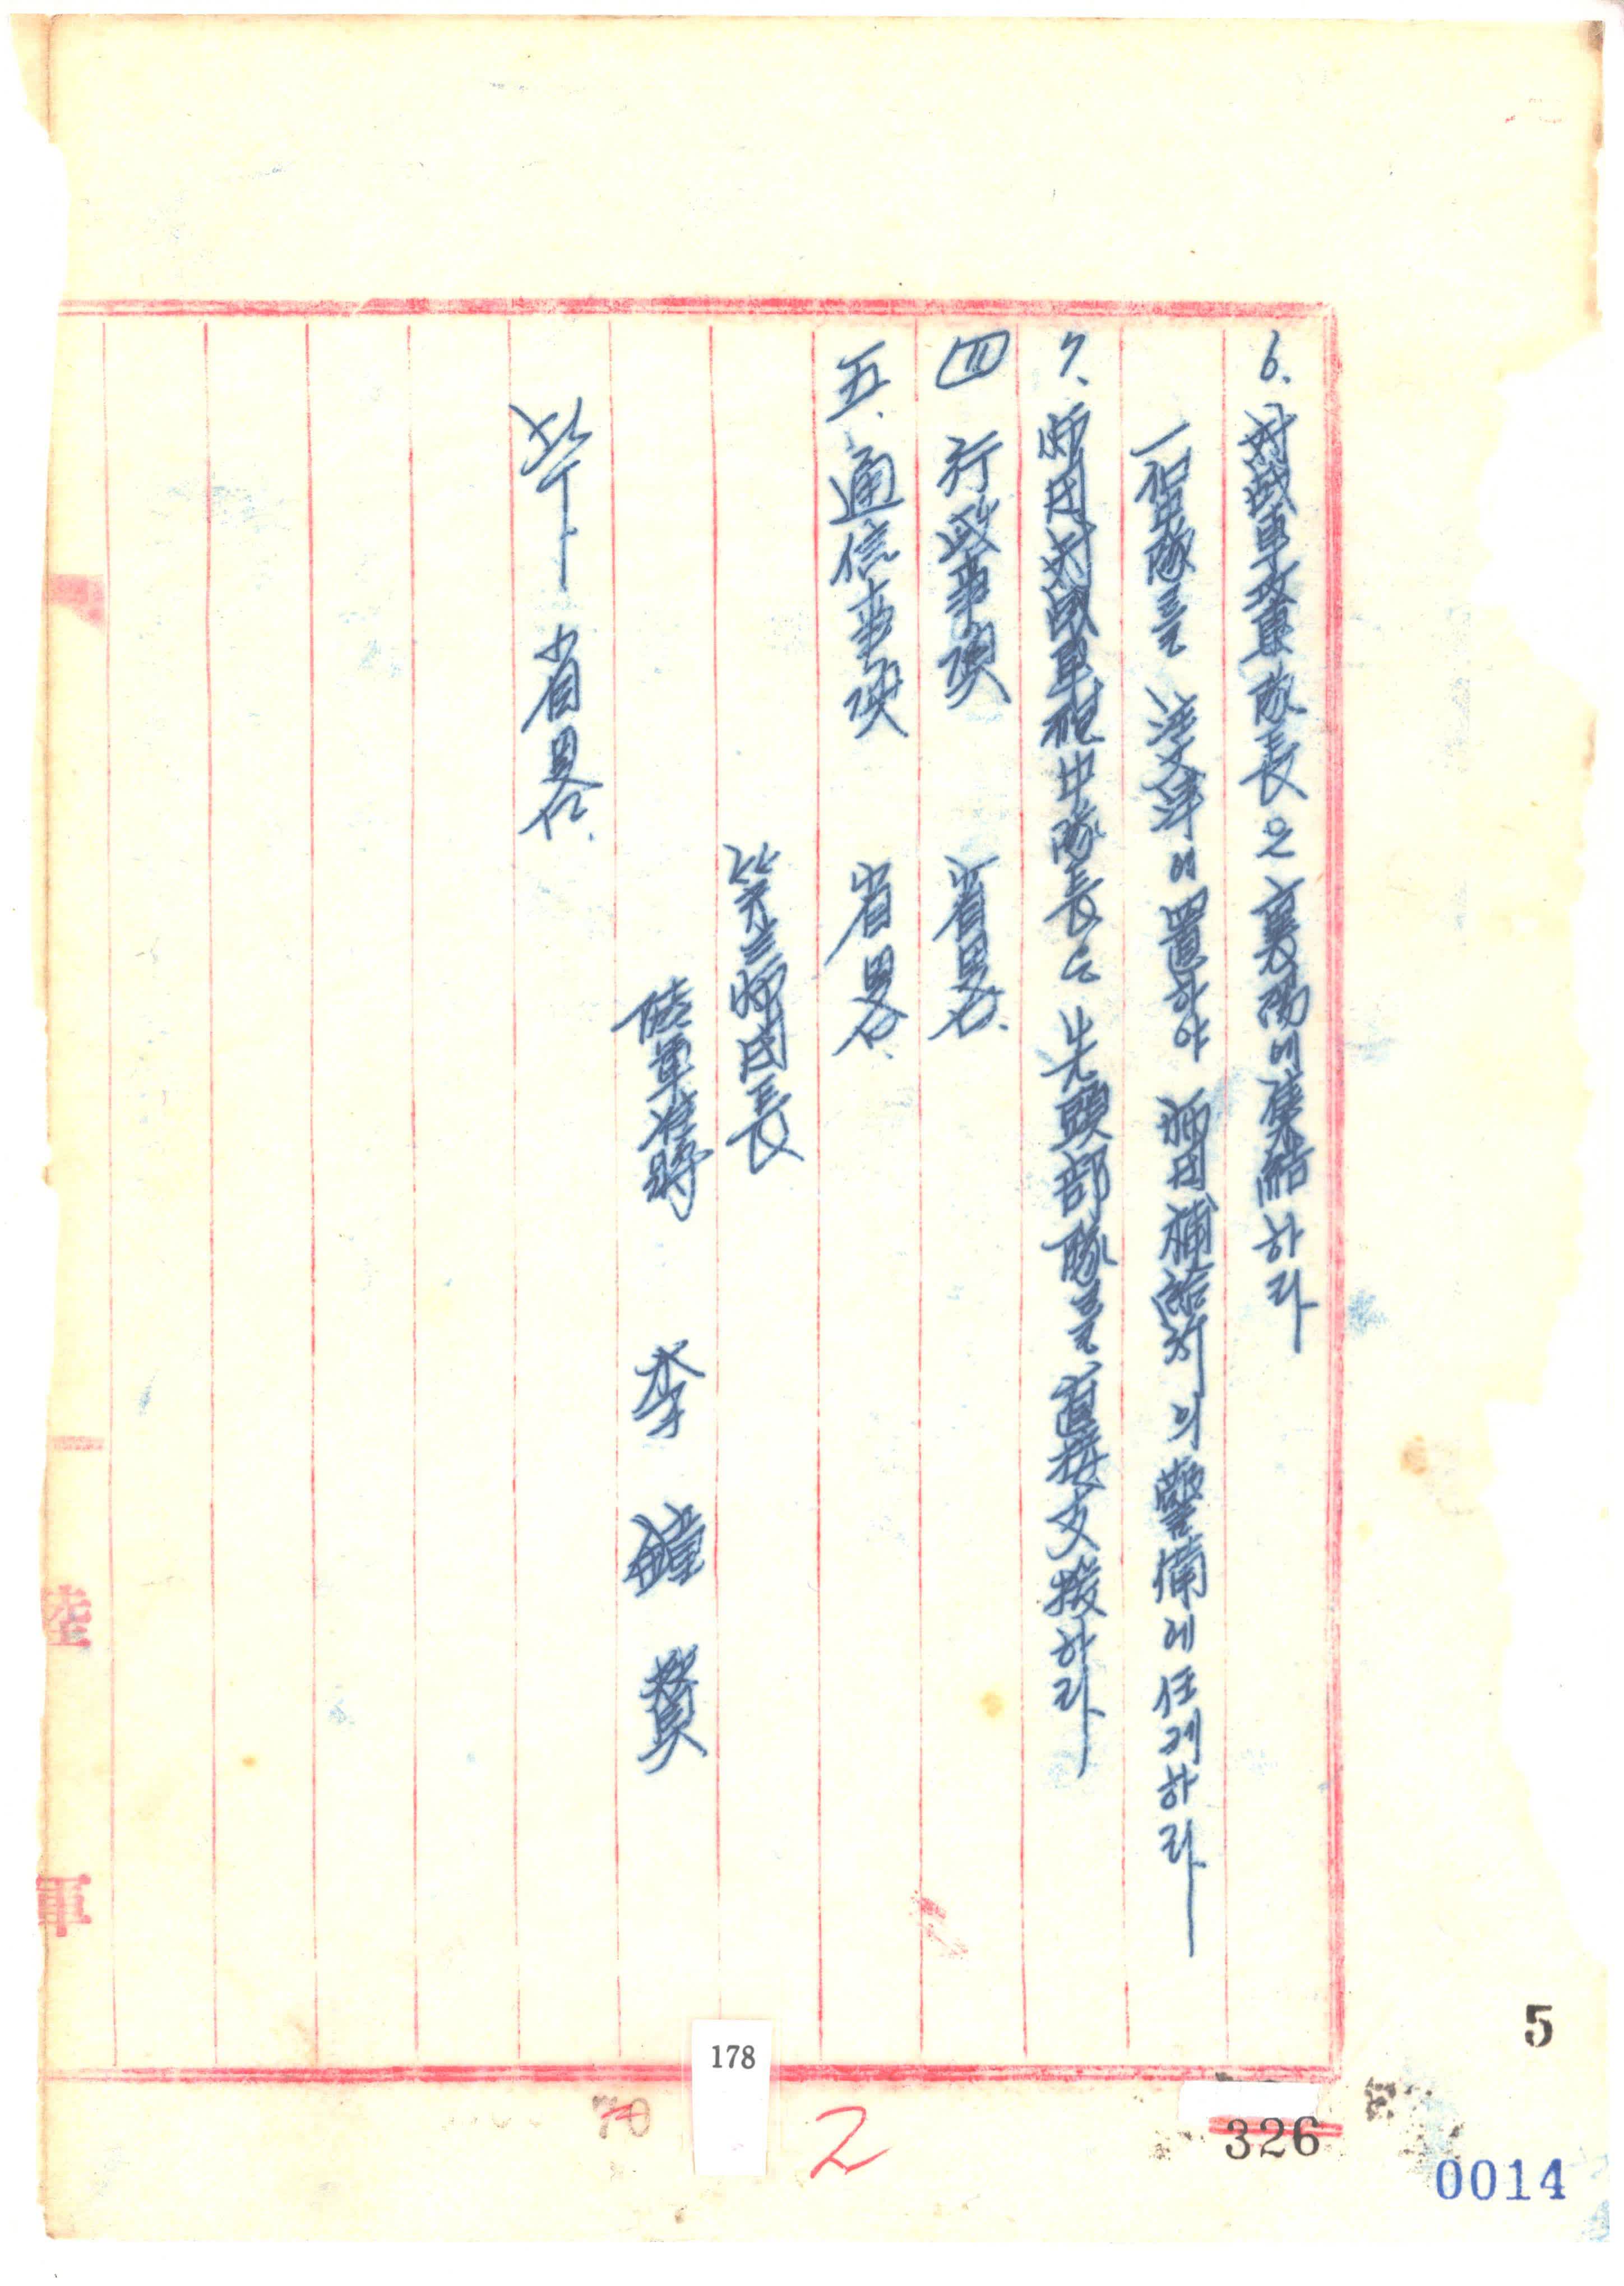 6. 対戰車攻車隊長은 襄陽에 集結하라
一個中隊를 注文津에 置하야 師団 補給所의 警備에 任케하라
7. 師団 対戰車砲中隊長는 先頭部隊를 直接支援하라
四 行政事項 省畧.
五. 通信事項 省畧.
第三師団長
陸軍准將 李鐘贊
省畧.
陸
軍
178
70
2
326
5
0014